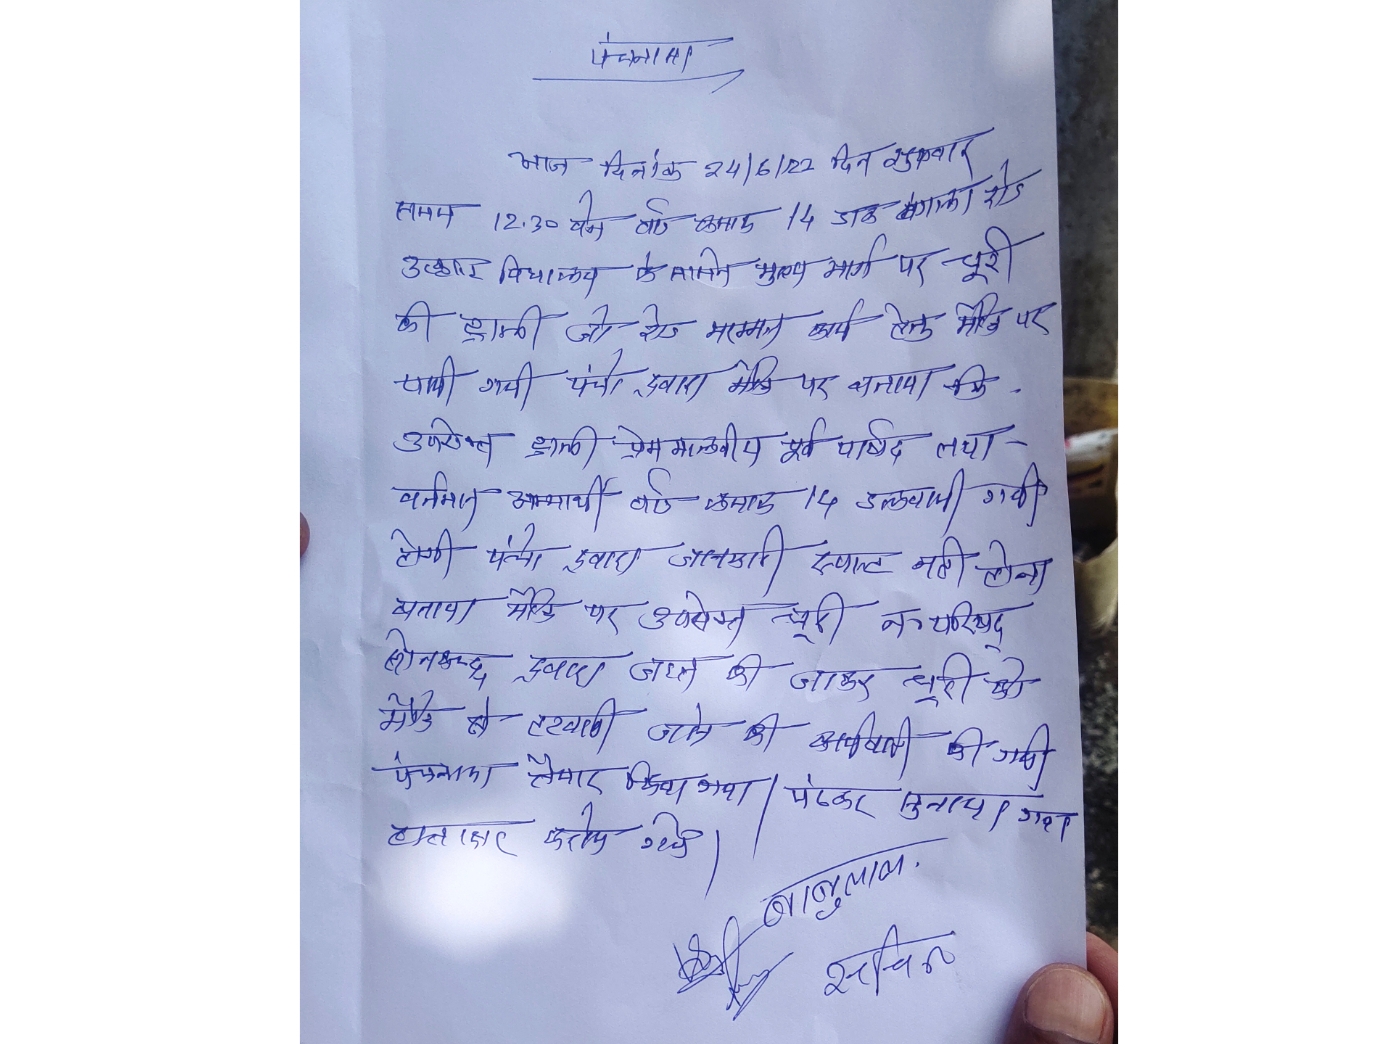 पंचनामा
आज दिनांक 24/6/22 दिन शुक्रवार
समय 12.30 बजे वार्ड क्रमांक 14 डाक बंगाला रोड
उत्कृष्ट विद्यालय के सामने मुख्य मार्ग पर चूरी
की ट्राली जो रोड मरम्मत कार्य हेतु मौके पर
पायी गयी पंचो द्वारा मौके पर बताया कि
उपरोक्त ट्राली प्रेम मालवीय पूर्व पार्षद तथा
वर्तमान अभ्यार्थी वार्ड क्रमांक 14 डलवायी गयी
होगी पंचो द्वारा जानकारी स्पष्ट नही होना
बताया मौके पर उपरोक्त चूरी न० परिषद्
सोनकच्छ द्वारा जप्त की जाकर चूरी को
मौके से हटवायी जाने की कार्यवाही की गयी
पंचनामा तैयार किया गया। पंढकर सुनाया गया
हस्ताक्षर कराये गये।
बाबुलाल.
सचिन